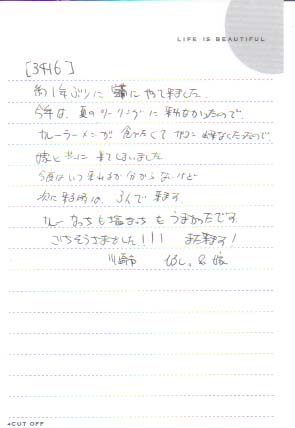 LIFE IS BEAUTIFUL
[3416]
約1年ぶりに やって来ました
今年は、夏のツーリングに来れなかったので、
カレーラーメンが 食べたくて なったので、
嫁と 来てしまいました
今度はいつ来れるか分からないけど
次に来る時は、3人で来ます
カレーなっちも塩なっちもうまかったです
ごちそうさまでした!!! また来ます!
川崎市 & 嫁
CUT OFF